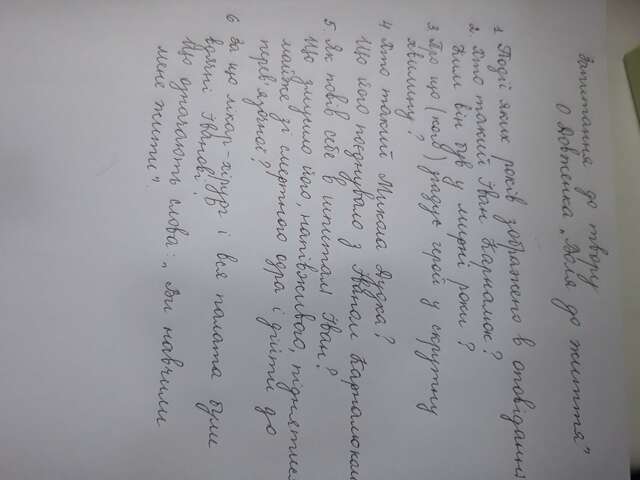 Запитання до твору
О Довженка „Воля до життя"
1 Події яких років зображено в оповіданні
2. Хто такий Іван Карналюк?
Ким він був у мирні роки?
3 Про що (кого) згадує герой у скрутну
хвилину?
4 Хто такий Микола Дудка?
Що його поєднувало з Іваном Карналюком
5. Як повів себе в шпиталі Іван?
Що змусило його, напівживого, піднятися
майже зі смертного одра і дійти до
перев'язочної?
6 За що лікар-хірург і вся палата були
вдячні Іванові?
Що означають слова: „Ви навчили
мене жити".